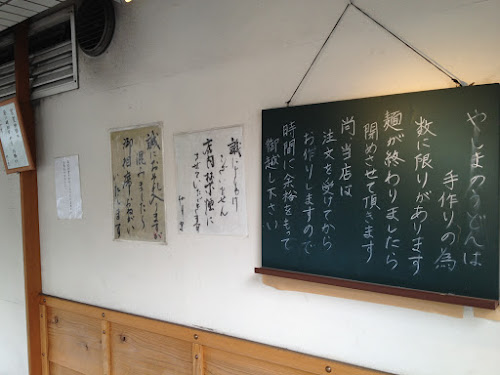 やしまのうどんは
手作りの為
数に限りがあります
麺が終わりましたら
閉めさせて頂きます
尚当店は
注文を受けてから
お作りしますので
時間に余裕をもって
御越し下さい
誠に
店内禁煙に
させていただきます
やしま
誠に
御相席お願い
いたします